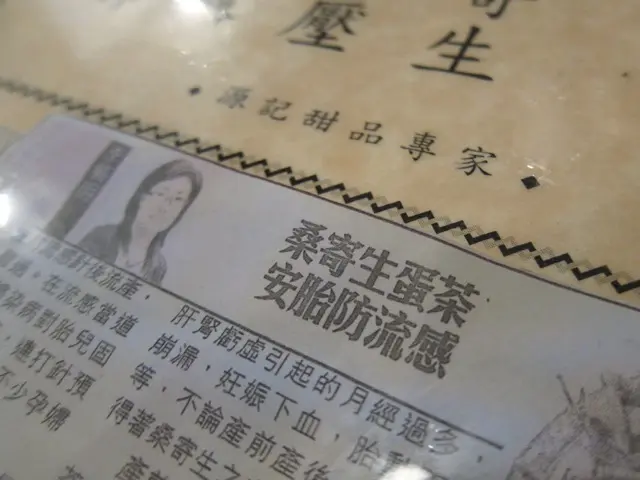 壓 生
源記甜品專家
桑寄生蛋茶
安胎防流感
計後流產，
在流感當道
染病到胎兒固
，連打針預
不少孕婦
肝腎虧虛引起的月經過多，
崩漏，妊娠下血，胎動
等，不論產前產後
得著桑寄生之
產前